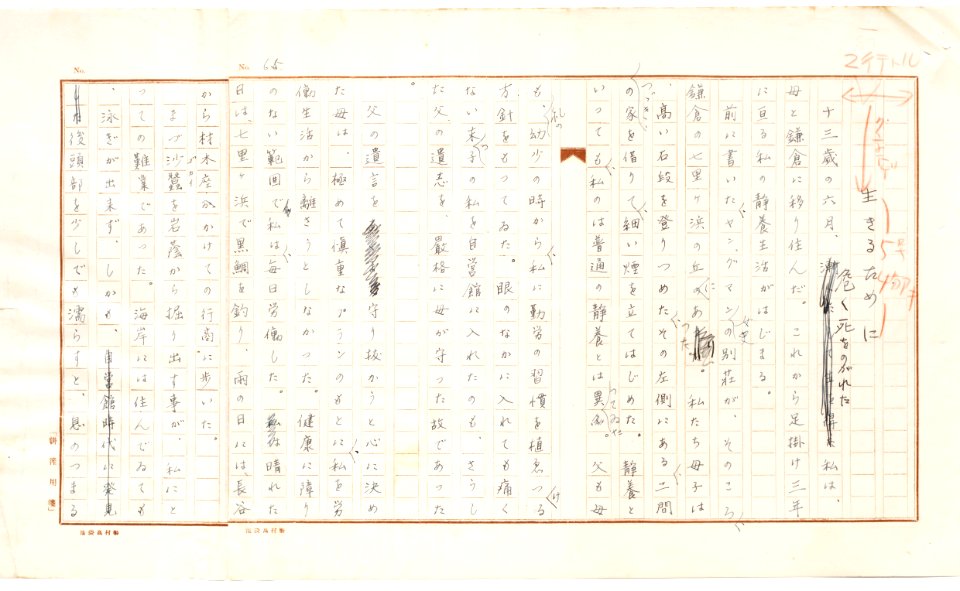 No. 65
2テテトル
5号
4分アキ
生きるために
十三歳の六月、危く死をのがれた私は、
母と鎌倉に移り住んだ。これから足掛け三年
に亘る私の靜養生活がはじまる。
前に書いたヤングマン女史の別荘が、そのころ
鎌倉の七里ヶ浜の丘にあつた。私たち母子は
つゞき、高い石段を登りつめたその左側にある二間
の家を借りて細い煙を立てはじめた。靜養と
いつても私のは普通の靜養とは異つてゐた。父も母
も、幼少の時から私に勤労の習慣を植ゑつける
方針をもつてゐた。眼のなかに入れても痛く
ない末つ子の私を自営館に入れたのも、さうし
た父の遺志を、嚴格に母が守つた故であつた
。
父の遺言を守り抜かうと心に決め
た母は、極めて慎重なプランのもとに私を労
働生活から離さうとしなかつた。健康に障り
のない範囲で私は毎日労働した。晴れた
日は、七里ヶ浜で黒鯛を釣り、雨の日には、長谷
から材木座かけての行商に歩いた。
まづ沙蚕を岩蔭から掘り出す事が、私にと
つての難業であつた。海岸には住んでゐても
、泳ぎが出来ず、しかも、
後頭部を少しでも濡らすと、息のつまる
No.